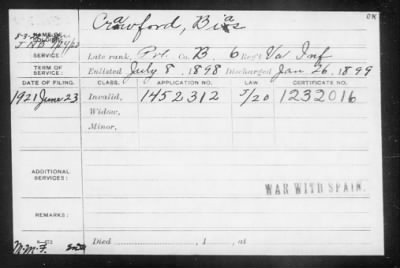 Crawford, Bias OK
NAME OF SOLDIER:
SERVICE: Late rank, Pvt. Co. B, 6 Reg't Va Inf
TERM OF SERVICE: Enlisted July 8, 1898 Discharged Jan 26, 1899
DATE OF FILING: CLASS. APPLICATION NO. LAW CERTIFICATE NO.
1921 June 23 Invalid, 1452312 5/20 1232016
Widow,
Minor,
ADDITIONAL SERVICES:
WAR WITH SPAIN.
REMARKS:
Died , 1 , at